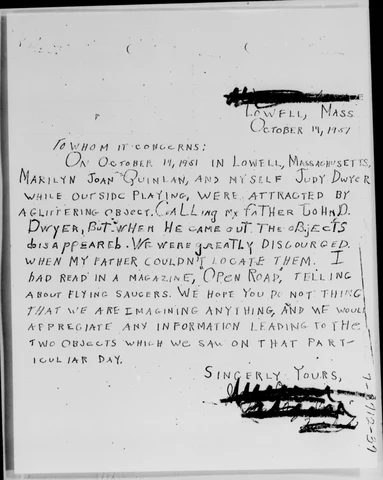 LOWELL, MASS
OCTOBER 19, 1961
TO WHOM IT CONCERNS:
ON OCTOBER 19, 1961 IN LOWELL, MASSACHUSETTS,
MARILYN JOAN QUINLAN, AND MYSELF JUDY DWYER
WHILE OUTSIDE PLAYING, WERE ATTRACTED BY
A GLITTERING OBJECT. CALLING MY FATHER JOHN D.
DWYER, BUT WHEN HE CAME OUT THE OBJECTS
DISAPPEARED. WE WERE GREATLY DISCOURGED
WHEN MY FATHER COULDN'T LOCATE THEM. I
HAD READ IN A MAGAZINE, "OPEN ROAD," TELLING
ABOUT FLYING SAUCERS. WE HOPE YOU DO NOT THING
THAT WE ARE IMAGINING ANYTHING, AND WE WOULD
APPRECIATE ANY INFORMATION LEADING TO THE
TWO OBJECTS WHICH WE SAW ON THAT PART-
ICULIAR DAY.
SINCERLY YOURS,